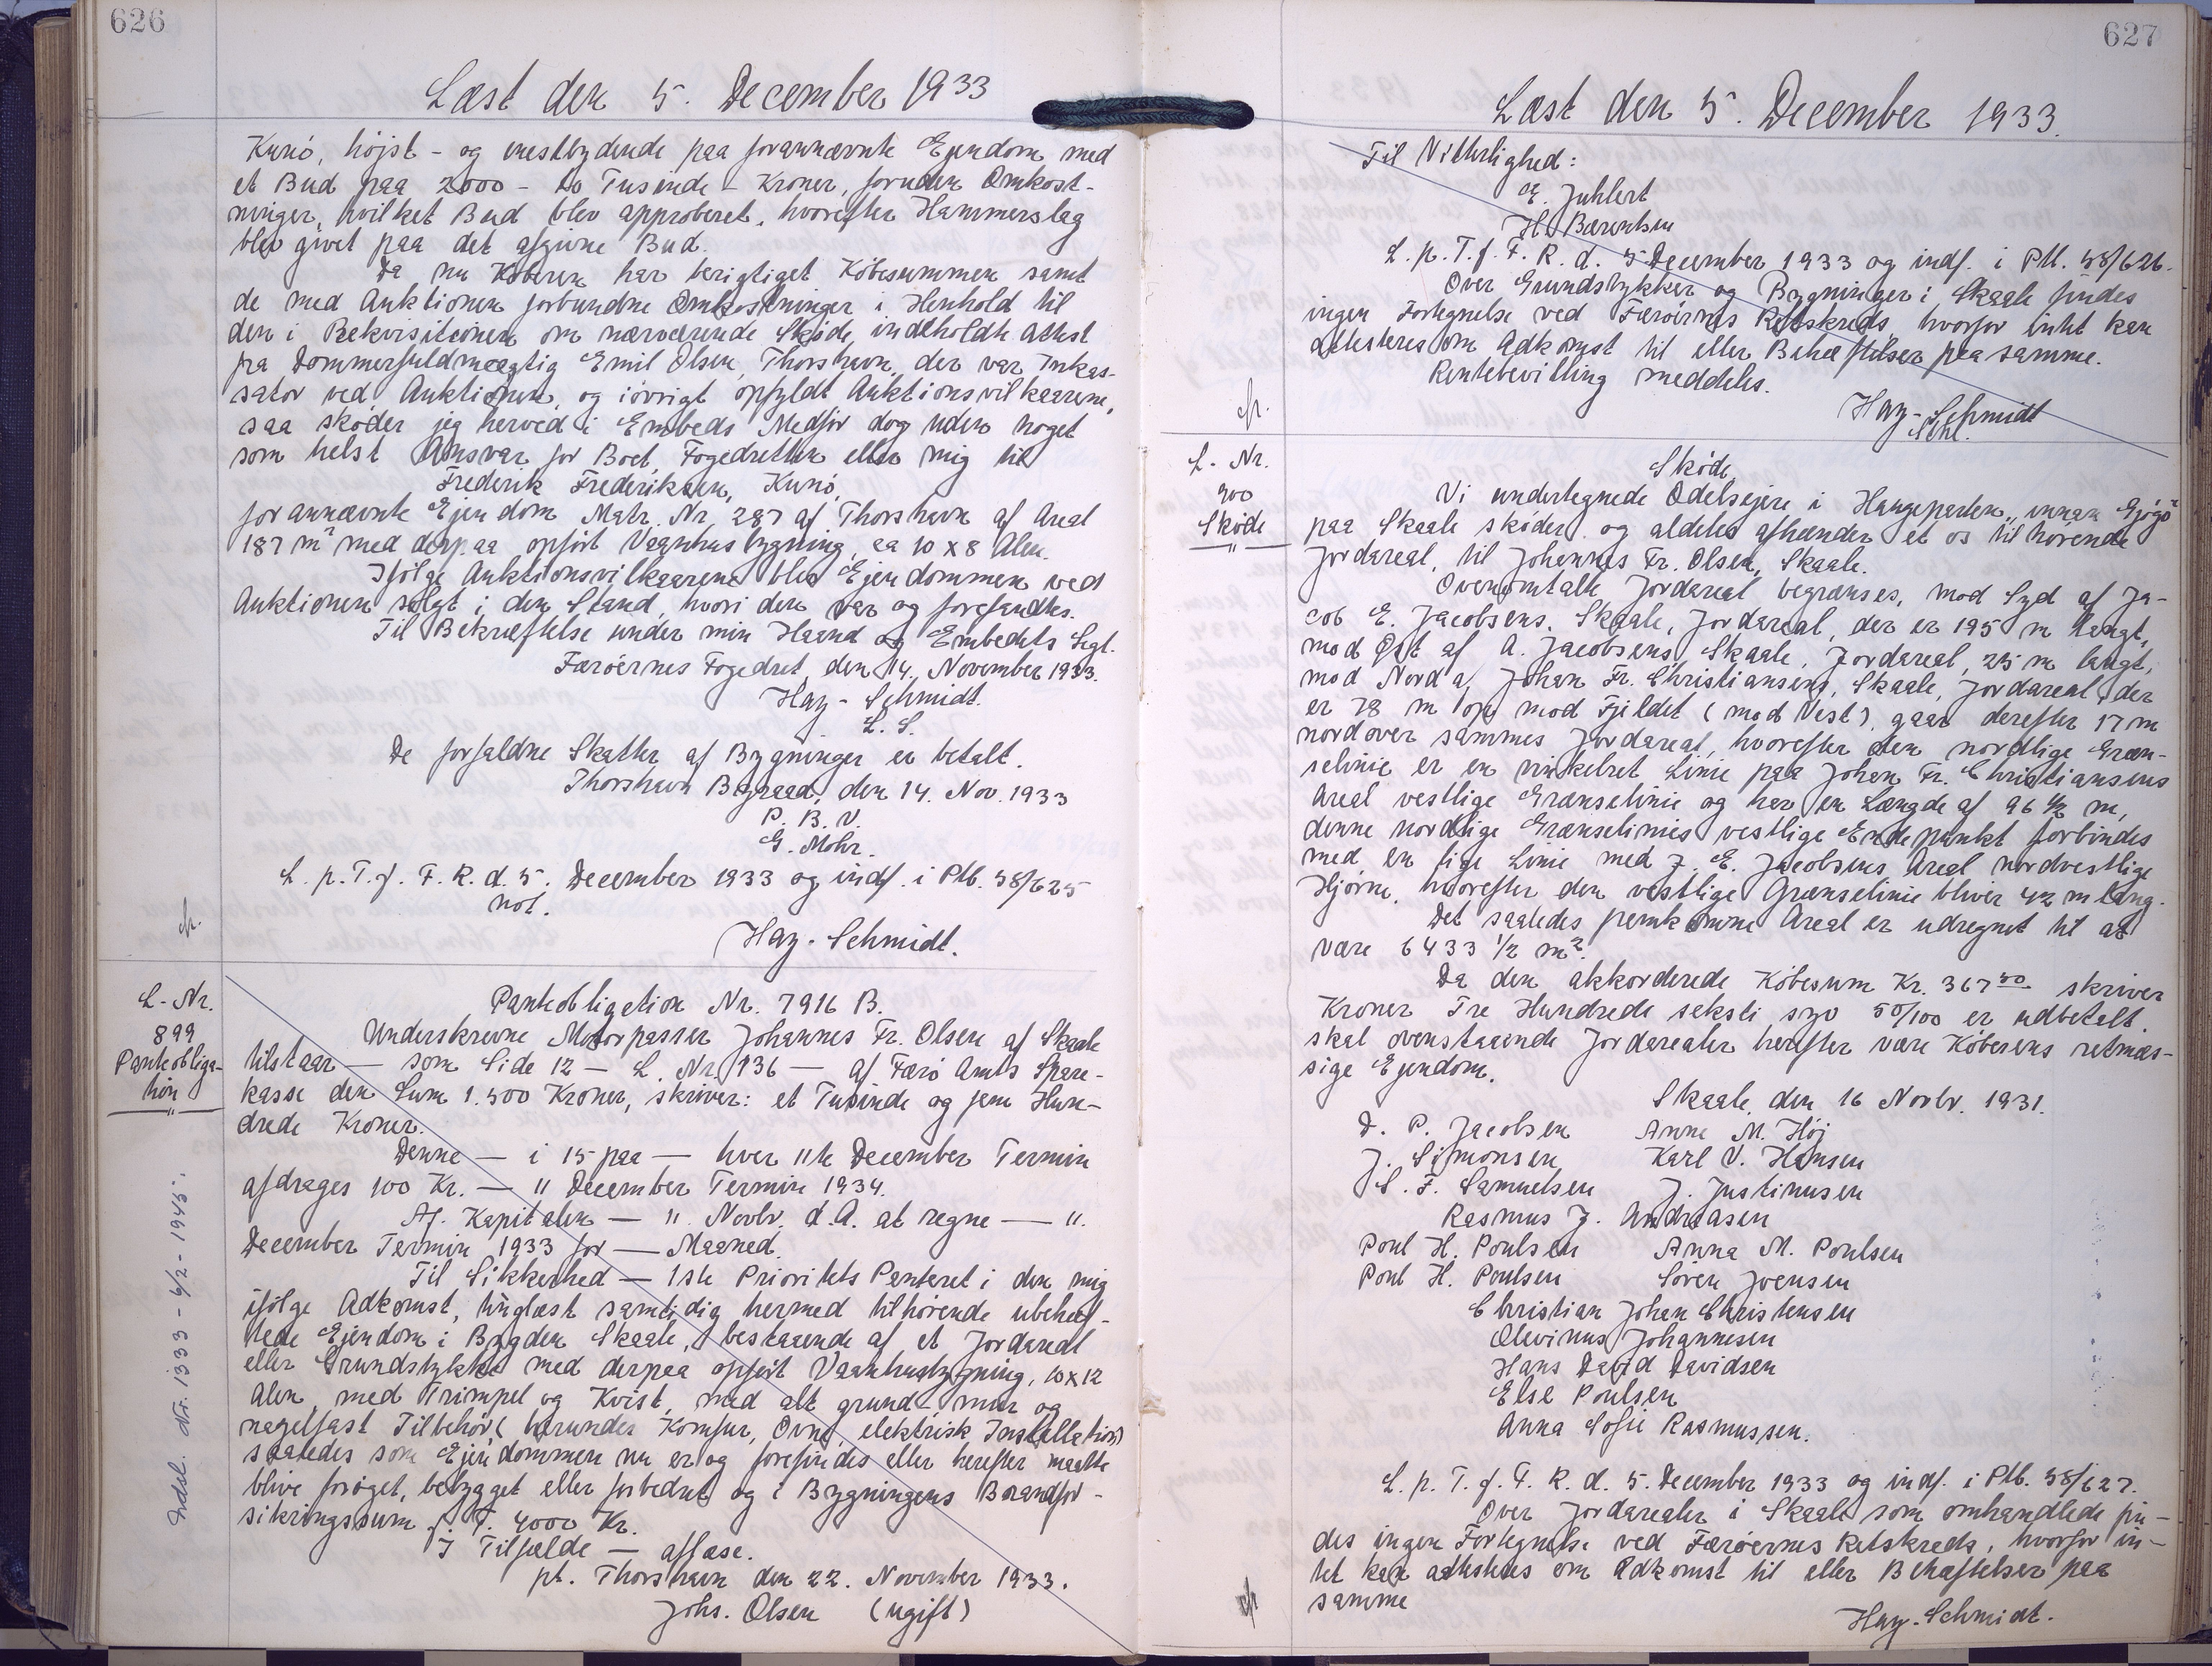 626
Læst den 5. December 1933
Kunö, højst- og mestbydende paa forannævnte Ejendom med
et Bud paa 2000 - to Tusinde - Kroner, foruden Omkost-
ninger, hvilket Bud blev approberet, hvorefter Hammerslag
blev givet paa det afgivne Bud.
Da nu Köberen har berigtiget Köbesummen samt
de med Auktionen forbundne Omkostninger i Henhold til
den i Rekvisitionen om nærværende Sköde indeholdte Attest
fra Dommerfuldmægtig Emil Olsen, Thorshavn, der var Inkas-
sator ved Auktionen, og iövrigt opfyldt Auktionsvilkaarene,
saa sköder jeg herved i Embeds Medför dog uden noget
som helst Ansvar for Boet, Fogedretten eller mig til
Frederik Frederiksen, Kunö,
forannævnte Ejendom Matr. Nr. 287 af Thorshavn af Areal
187 m² med derpaa opfört Vaanhusbygning, ca 10 x 8 Alen.
Ifölge Auktionsvilkaarene blev Ejendommen ved
Auktionen solgt i den Stand, hvori den var og forefandtes.
Til Bekræftelse under min Haand og Embedets Segl.
Færöernes Fogedret, den 14. November 1933.
Hay-Schmidt.
L. S.
De forfaldne Skatter af Bygninger er betalt.
Thorshavn Byraad, den 14. Nov. 1933
P. B. V.
G. Mohr.
L. p. T. f. F. R. d. 5. December 1933 og indf. i Ptb. 58/625
not.
cfr.
Hay-Schmidt.
L-Nr.
899
Panteobliga-
tion
"
Indsl. Nr. 1333 - 6/2 - 1945.
Panteobligation Nr. 7916 B.
Underskrevne Motorpasser Johannes Fr. Olsen af Skaale
tilstaar — som Side 12 — L. Nr. 136 — af Færö Amts Spare-
kasse den Sum 1.500 Kroner, skriver: et Tusinde og fem Hun-
drede Kroner.
Denne — i 15 paa — hver 11te December Termin
afdrages 100 Kr. — 11 December Termin 1934.
Af Kapitalen — 11. Novbr. d.A. at regne — 11.
December Termin 1933 for — Maaned.
Til Sikkerhed — 1ste Prioritets Panteret i den mig
ifölge Adkomst, tinglæst samtidig hermed tilhörende ubehæf-
tede Ejendom i Bygden Skaale, bestaaende af et Jordareal
eller Grundstykke med derpaa opfört Vaanhusbygning, 10x12
Alen, med Trimpel og Kvist, med alt grund- mur og
nagelfast Tilbehör (herunder Komfur, Ovne, elektrisk Installation)
saaledes som Ejendommen nu er og forefindes eller herefter maatte
blive foröget, bebygget eller forbedret og i Bygningens Brandfor-
sikringssum f. T. 4000 Kr.
I Tilfælde — aflæse.
pt. Thorshavn den 22. November 1933.
Johs. Olsen (ugift)
627
Læst den 5. December 1933.
Til Vitterlighed:
E. Juhlert
H. Bærentsen
L. p. T. f. F. R. d. 5 December 1933 og indf. i Ptb. 58/626.
Over Grundstykker og Bygninger i Skaale findes
ingen Fortegnelse ved Færöernes Retskreds, hvorfor intet kan
attesteres om Adkomst til eller Behæftelser paa samme.
Rentebevilling meddeles.
cfr.
Hay-Schmidt
L-Nr.
900
Sköde
"
Sköde
Vi undertegnede Odelsejere i Haugeparten "innan Gjógv"
paa Skaale sköder og aldeles afhænder et os tilhörende
Jordareal, til Johannes Fr. Olsen, Skaale.
Ovenomtalte Jordareal begrænses, mod Syd af Ja-
cob E. Jacobsens, Skaale, Jordareal, der er 195 m langt,
mod Öst af A. Jacobsens, Skaale, Jordareal, 25 m langt,
mod Nord af Johan Fr. Christiansens, Skaale, Jordareal, der
er 78 m op mod Fjeldet (mod Vest), gaar derefter 17 m
nordover sammes Jordareal, hvorefter den nordlige Græn-
selinie er en vinkelret Linie paa Johan Fr. Christiansens
Areal vestlige Grænselinie og har en Længde af 96 1/2 m,
denne nordlige Grænselinies vestlige Endepunkt forbindes
med en lige Linie med J. E. Jacobsens Areal nordvestlige
Hjörne, hvorefter den vestlige Grænselinie bliver 42 m lang.
Det saaledes fremkomne Areal er udregnet til at
være 6433 1/2 m².
Da den akkorderede Köbesum Kr. 367 50 skriver
Kroner Tre Hundrede seksti syv 50/100 er udbetalt,
skal ovenstaaende Jordarealer herefter være Köberens retmæs-
sige Ejendom.
Skaale, den 16 Novbr. 1931.
D. P. Jacobsen Anne M. Höj
J. Simonsen Karl V. Hansen
S. F. Samuelsen J. Justinusen
Rasmus J. Andreasen
Poul H. Poulsen Anna M. Poulsen
Poul H. Poulsen Sören Joensen
Christian Johan Christensen
Olevinus Johannesen
Hans David Davidsen
Else Poulsen
Anna Sofie Rasmussen.
L. p. T. f. F. R. d. 5. December 1933 og indf. i Ptb. 58/627.
Over Jordarealer i Skaale som omhandlede fin-
des ingen Fortegnelse ved Færöernes Retskreds, hvorfor in-
tet kan attesteres om Adkomst til eller Behæftelser paa
samme
cfr
Hay-Schmidt.